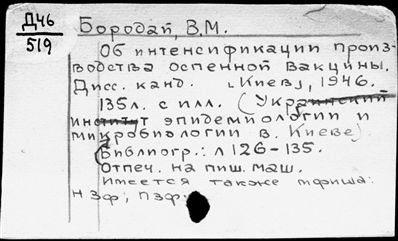 Д46
519
Бородай, В.М.
Об интенсификации произ-
водства оспенной вакцины.
Дисс. канд. [Киев], 1946.
135л. с илл. (Украинский
институт эпидемиологии и
микробиологии в. Киеве)
Библиогр.: л 126-135.
Отпеч. на пиш. маш.
Имеется также мфиша:
НЗФ; ПЗФ: